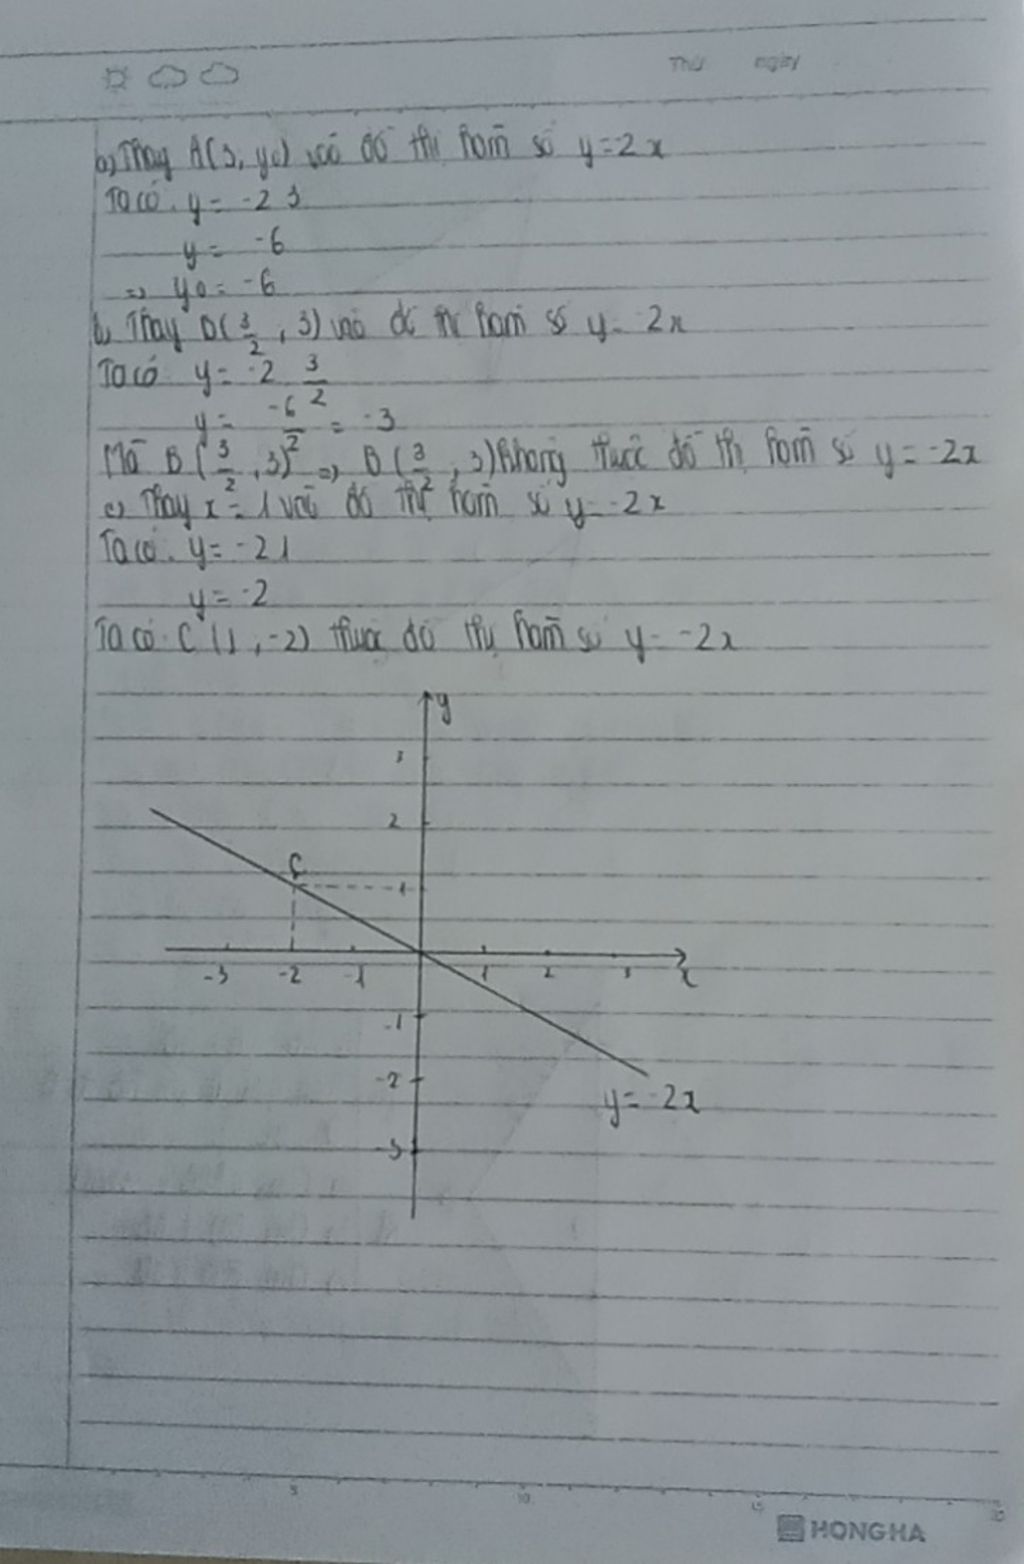 Thứ ngày
a) Thay A(3, y0) vào đồ thị hàm số y=2x
Ta có. y = -2 3
y = -6
=> y0 = -6
b, Thay B(3/2, 3) vào đồ thị hàm số y = 2x
Ta có y = -2 3/2
y = -6/2 = -3
Mà B (3/2, 3) => B (3/2, 3) không thuộc đồ thị hàm số y = -2x
c) Thay x = 1 vào đồ thị hàm số y = -2x
Ta có. y = -2 1
y = -2
Ta có C (1, -2) thuộc đồ thị hàm số y = -2x
y
3
2
C
1
-3 -2 -1 1 2 3 x
-1
-2
y = -2x
-3
5 10 15 20
HONG HA